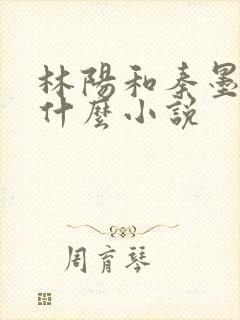 林陽和秦墨
什麼小說
周育琴